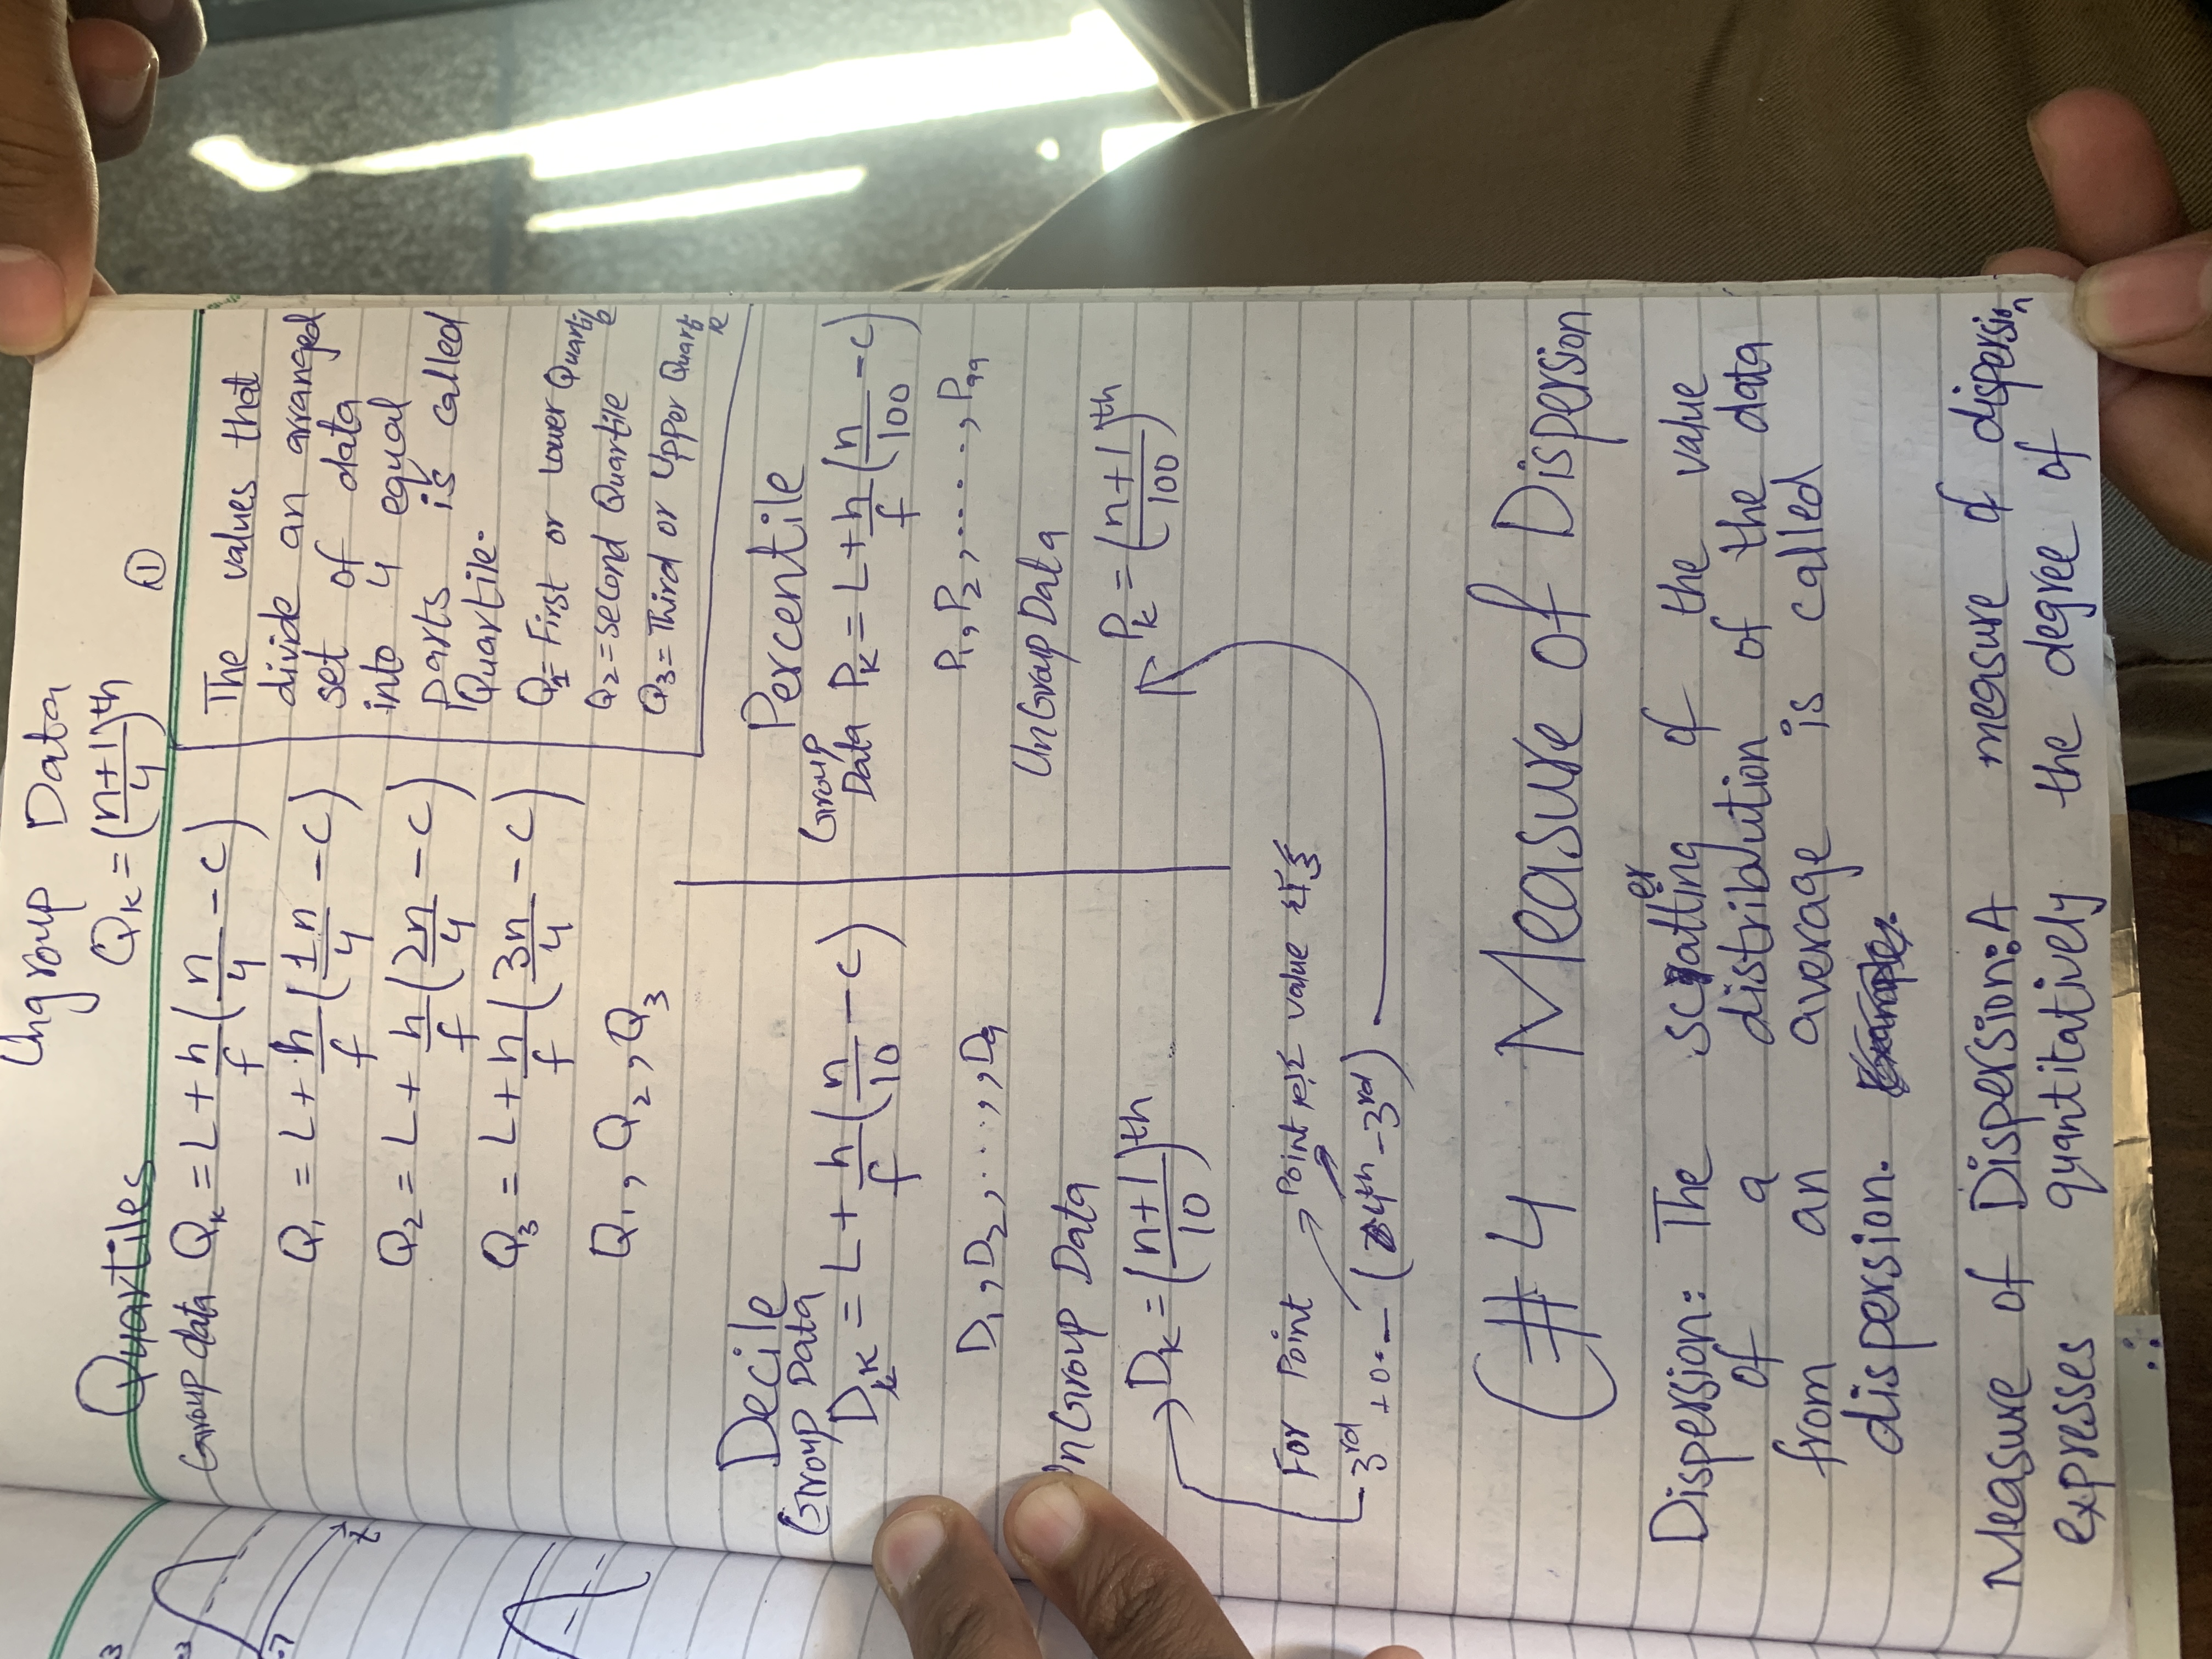 Ungroup Data
Quartiles Qk = (n+1/4)th ①
Group data Qk = L + h/f (n/4 - c)
Q1 = L + h/f (1n/4 - c)
Q2 = L + h/f (2n/4 - c)
Q3 = L + h/f (3n/4 - c)
Q1, Q2, Q3
The values that
divide an arranged
set of data
into 4 equal
parts is called
Quartile.
Q1 = First or Lower Quartile
Q2 = second Quartile
Q3 = Third or Upper Quartile
Decile
Group Data
Dk = L + h/f (n/10 - c)
D1, D2, ...,, D9
nGroup Data
Dk = (n+1/10)th
Percentile
Group
Data Pk = L + h/f (n/100 - c)
P1, P2, ....., P99
UnGroup Data
Pk = (n+1/100)th
For Point Point value
3rd + 0.— (4th - 3rd)
C#4 Measure of Dispersion
Dispersion: The scattering of the value
of a distribution of the data
from an average is called
dispersion.
Measure of Dispersion: A measure of dispersion
expresses quantitatively the degree of